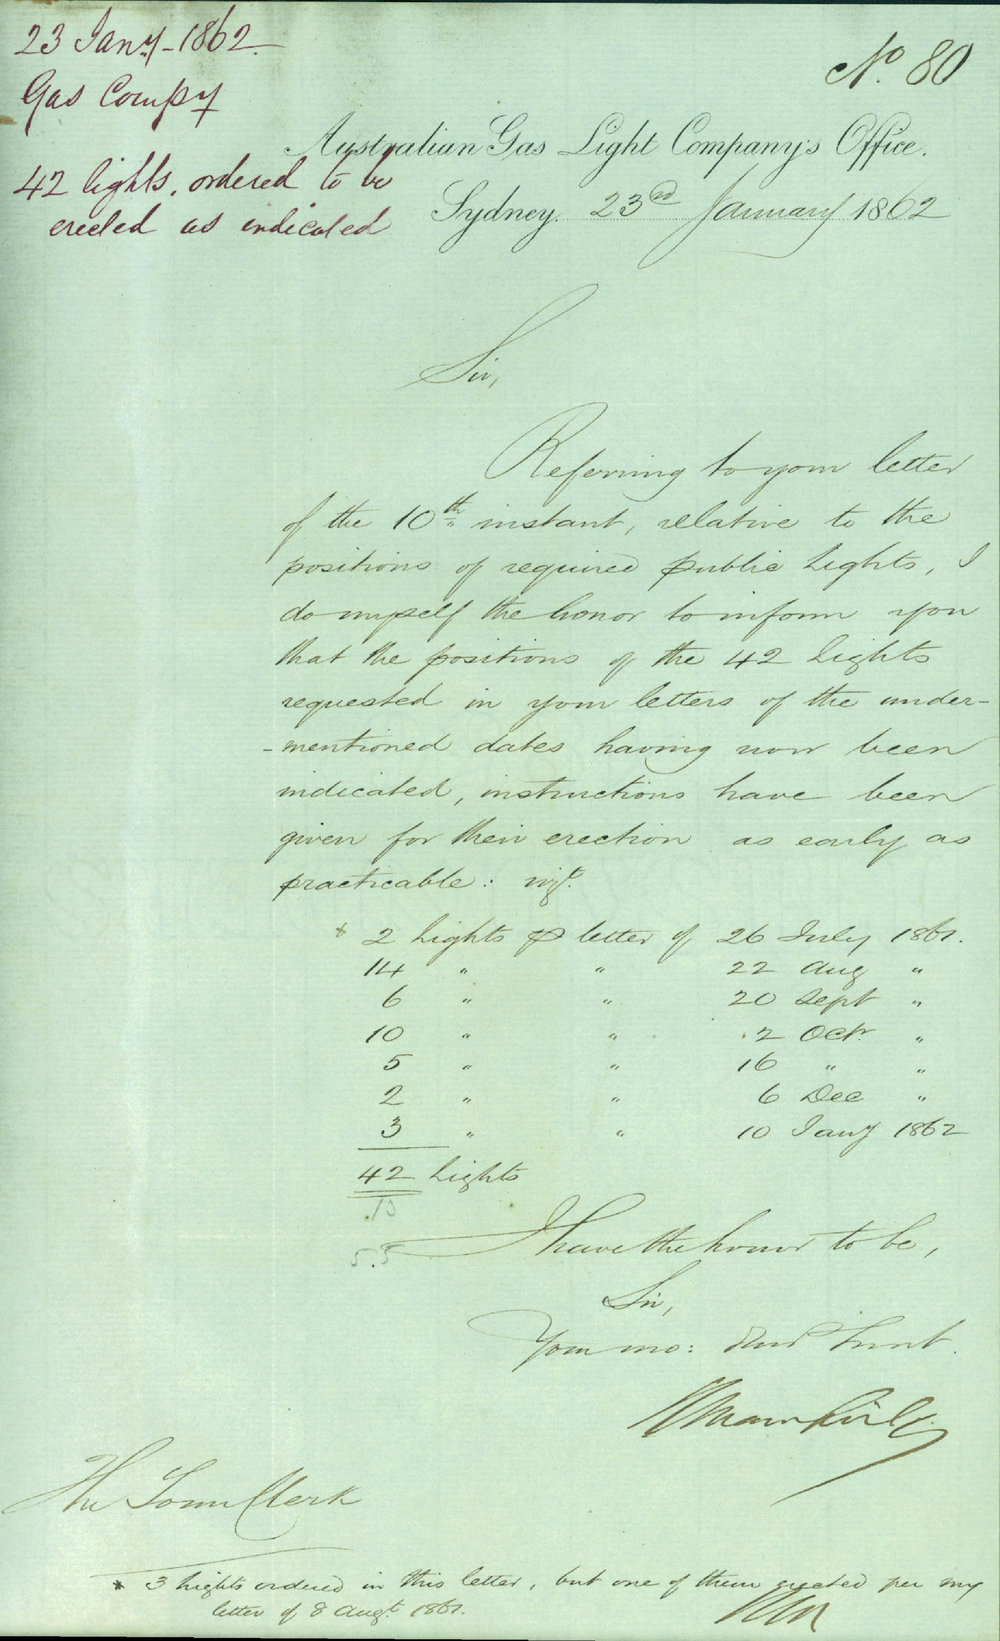 23 Jany - 1862.
Gas Compy
42 lights, ordered to be
erected as indicated
No. 80
Australian Gas Light Company's Office.
Sydney. 23rd January 1862
Sir,
Referring to your letter
of the 10th instant, relative to the
positions of required public Lights, I
do myself the honor to inform you
that the positions of the 42 Lights
requested in your letters of the under-
-mentioned dates having now been
indicated, instructions have been
given for their erection as early as
practicable: vizt.
* 2 Lights P letter of 26 July 1861.
14 " " 22 Aug "
6 " " 20 Sept "
10 " " 2 Octr. "
5 " " 16 " "
2 " " 6 Dec "
3 " " 10 Jany 1862
42 Lights
I have the honor to be,
Sir,
Your mo: Obed Servt.
The Town Clerk
* 3 Lights ordered in this letter, but one of them erected per my
letter of 8 Augt. 1861.